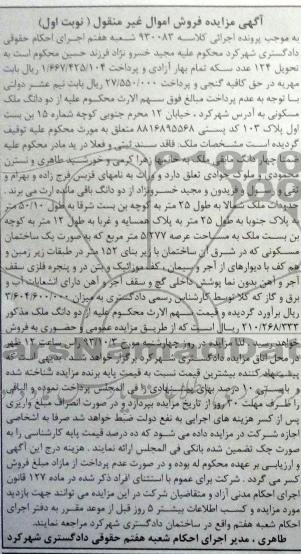 آگهی مزایده فروش اموال غیر منقول ( نوبت اول )
به موجب پرونده اجرائی کلاسه ۹۳۰۰۸۳ شعبه هفتم اجرای احکام حقوقی
دادگستری شهرکرد محکوم علیه مجید خسرو نژاد فرزند حسین محکوم است به
تحویل ۱۲۴ عدد سکه تمام بهار آزادی و پرداخت ۱/۶۶۷/۴۲۵/۱۰۴ ریال بابت
مهریه در حق کافیه گنجی و پرداخت ۲۷/۵۵۰/۰۰۰ ریال بابت نیم عشر دولتی
با توجه به عدم پرداخت مبالغ فوق سهم الارث محکوم علیه از دو دانگ ملک
مسکونی به آدرس شهرکرد ، خیابان ۱۲ محرم جنوبی کوچه شماره ۱۵ بن بست
اول پلاک ۱۰۳ کد پستی ۸۸۱۶۸۹۵۵۶۸ متعلق به مورث محکوم علیه توقیف
گردیده است مشخصات ملک: فاقد سند ثبتی و فعلا در ید مادر محکوم علیه
است چهار دانگ مابقی ملک به خانمها زهرا کرمی و خورشید طاهری و نسترن
محمودی و ملوک جوادی تعلق دارد و وراث به نامهای قزبس فرج زاده و بهرام و
و فریدون و مجید خسرونژاد از دو دانگ باقی مانده ارث می برند .
حدودات ملک شمالا به طول ۲۵ متر به کوچه بن بست شرقا به طول ۱۰/۵۰ متر
به پلاک جنوبا به طول ۲۵ متر به پلاک همسایه و غربا به طول ۱۲ متر به کوچه
بن بست ملک به مساحت عرصه ۲۷۷/۵ متر مربع که به صورت یک ساختمان
مسکونی که در شرق آن ساختمان با زیر بنای ۱۵۲ متر در طبقات زیر زمین و
هم کف با دیوارهای از آجر و سیمان ، کف موزائیک و بتن در و پنجره فلزی سقف
آجر و آهن بدون نما پوشش داخلی گچ و سقف آجر و آهن دارای انشعابات آب و
برق و گاز که کلا توسط کارشناس رسمی دادگستری به میزان ۳/۶۰۴/۶۰۰/۰۰۰
ریال برآورد گردیده و قیمت سهم الارث محکوم علیه از دو دانگ ملک مذکور
۲۱۰/۲۶۸/۳۳۳ ریال است که از طریق مزایده عمومی و حضوری به فروش
خواهد رسید . لذا مزایده در روز چهارشنبه مورخ ۹۳/۱۰/۳ از ساعت ۱۲ ظهر
در محل اتاق مزایده دادگستری شهرکرد برگزار خواهد شد بدیهی است که
پیشنهاد کننده بیشترین قیمت نسبت به قیمت پایه برنده مزایده شناخته شده
و بایستی ۱۰ درصد بهای پیشنهادی را فی المجلس پرداخت نموده و الباقی
را ظرف مهلت ۳۰ روز از تاریخ مزایده بپردازد و در صورت انصراف مبلغ واریزی
پس از کسر هزینه های اجرایی به نفع دولت ضبط خواهد شد صرفا به اشخاصی
اجازه شرکت در مزایده داده می شود که ده درصد قیمت پایه کارشناسی را به
صورت چک تضمین شده بانکی فی المجلس ارائه نمایند . هزینه درج این آگهی
و ارزیابی بر عهده محکوم له بوده و در صورت عدم پرداخت از مازاد مبلغ فروش
کسر می گردد . شرکت برای عموم با استثنای افراد ذکر شده در ماده ۱۲۷ قانون
اجرای احکام مدنی آزاد و متقاضیان شرکت در این مزایده می توانند جهت بازدید
مورد مزایده و کسب اطلاعات بیشتر ۵ روز قبل از موعد مقرر به دفتر اجرای
احکام شعبه هفتم واقع در ساختمان دادگستری شهرکرد مراجعه نمایند.
طاهری ، مدیر اجرای احکام شعبه هفتم حقوقی دادگستری شهرکرد